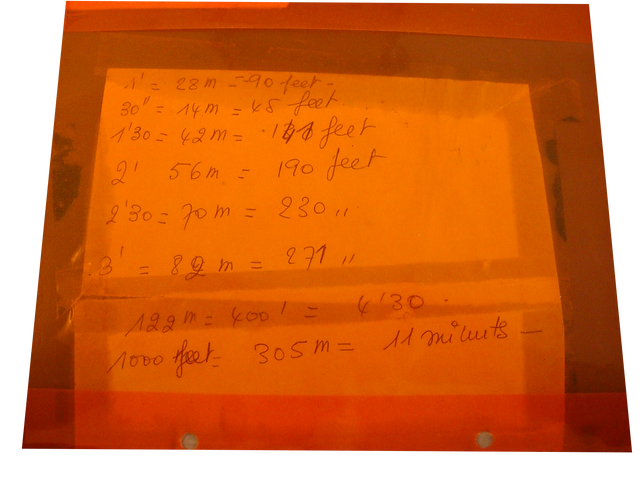 1' = 28 m = 90 feet -
30" = 14 m = 45 feet
1'30 = 42 m = 141 feet
2' 56 m = 190 feet
2'30 = 70 m = 230 "
3' = 82 m = 271 "
122 m = 400' = 4'30 .
1000 feet = 305 m = 11 minuts —